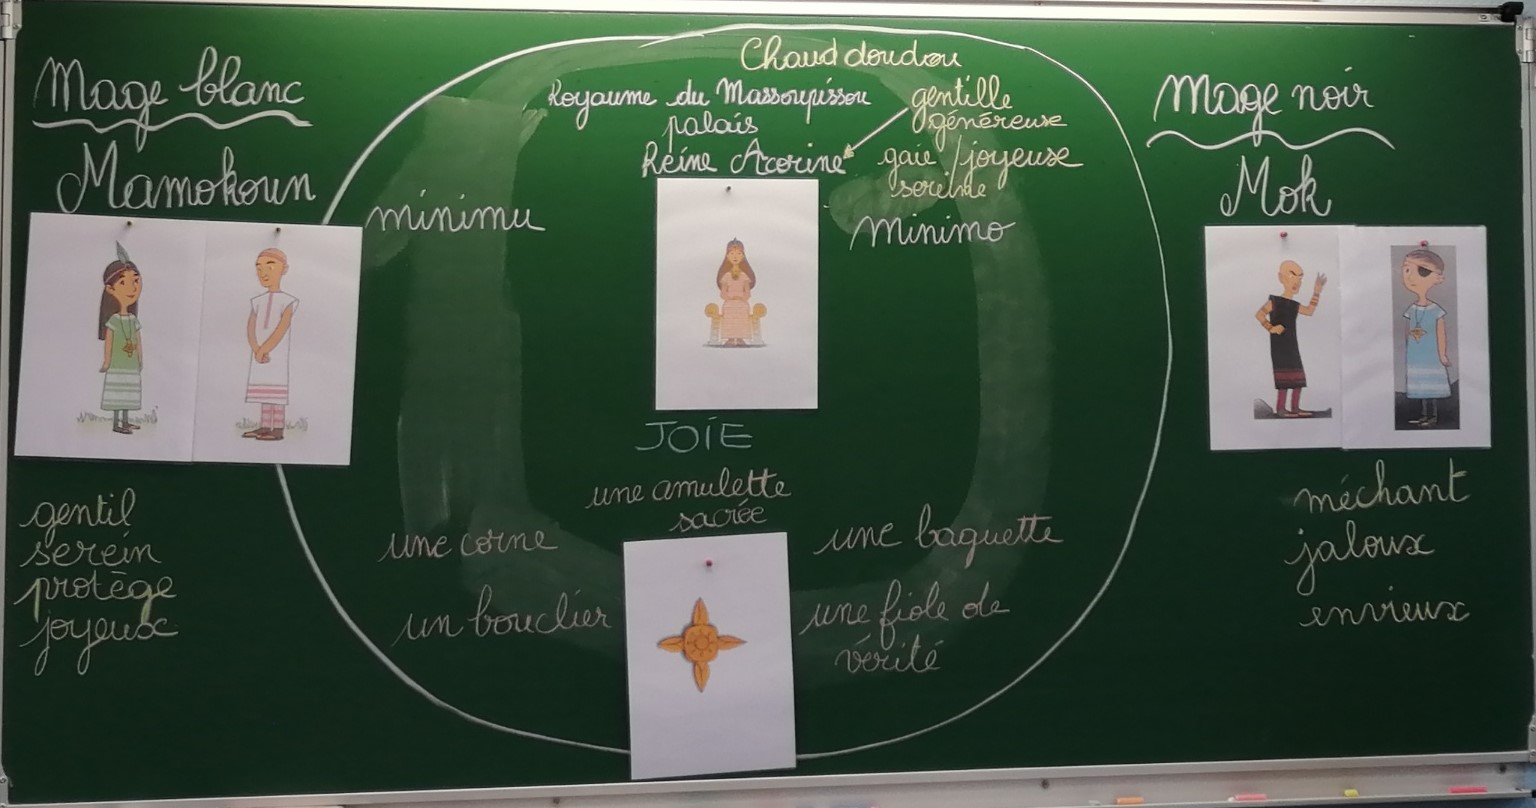 Mage blanc
Mamokoun
gentil
serein
protège
joyeux
Chaud doudou
Royaume du Massoupissou
palais
Reine Acorine
gentille
généreuse
gaie / joyeuse
sereine
minimu
Minimo
JOIE
une amulette
sacrée
une corne
un bouclier
une baguette
une fiole de
vérité
Mage noir
Mok
méchant
jaloux
envieux